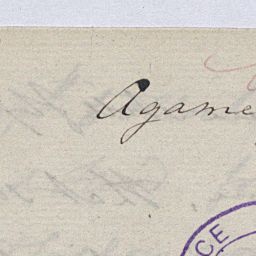 Agame
CE